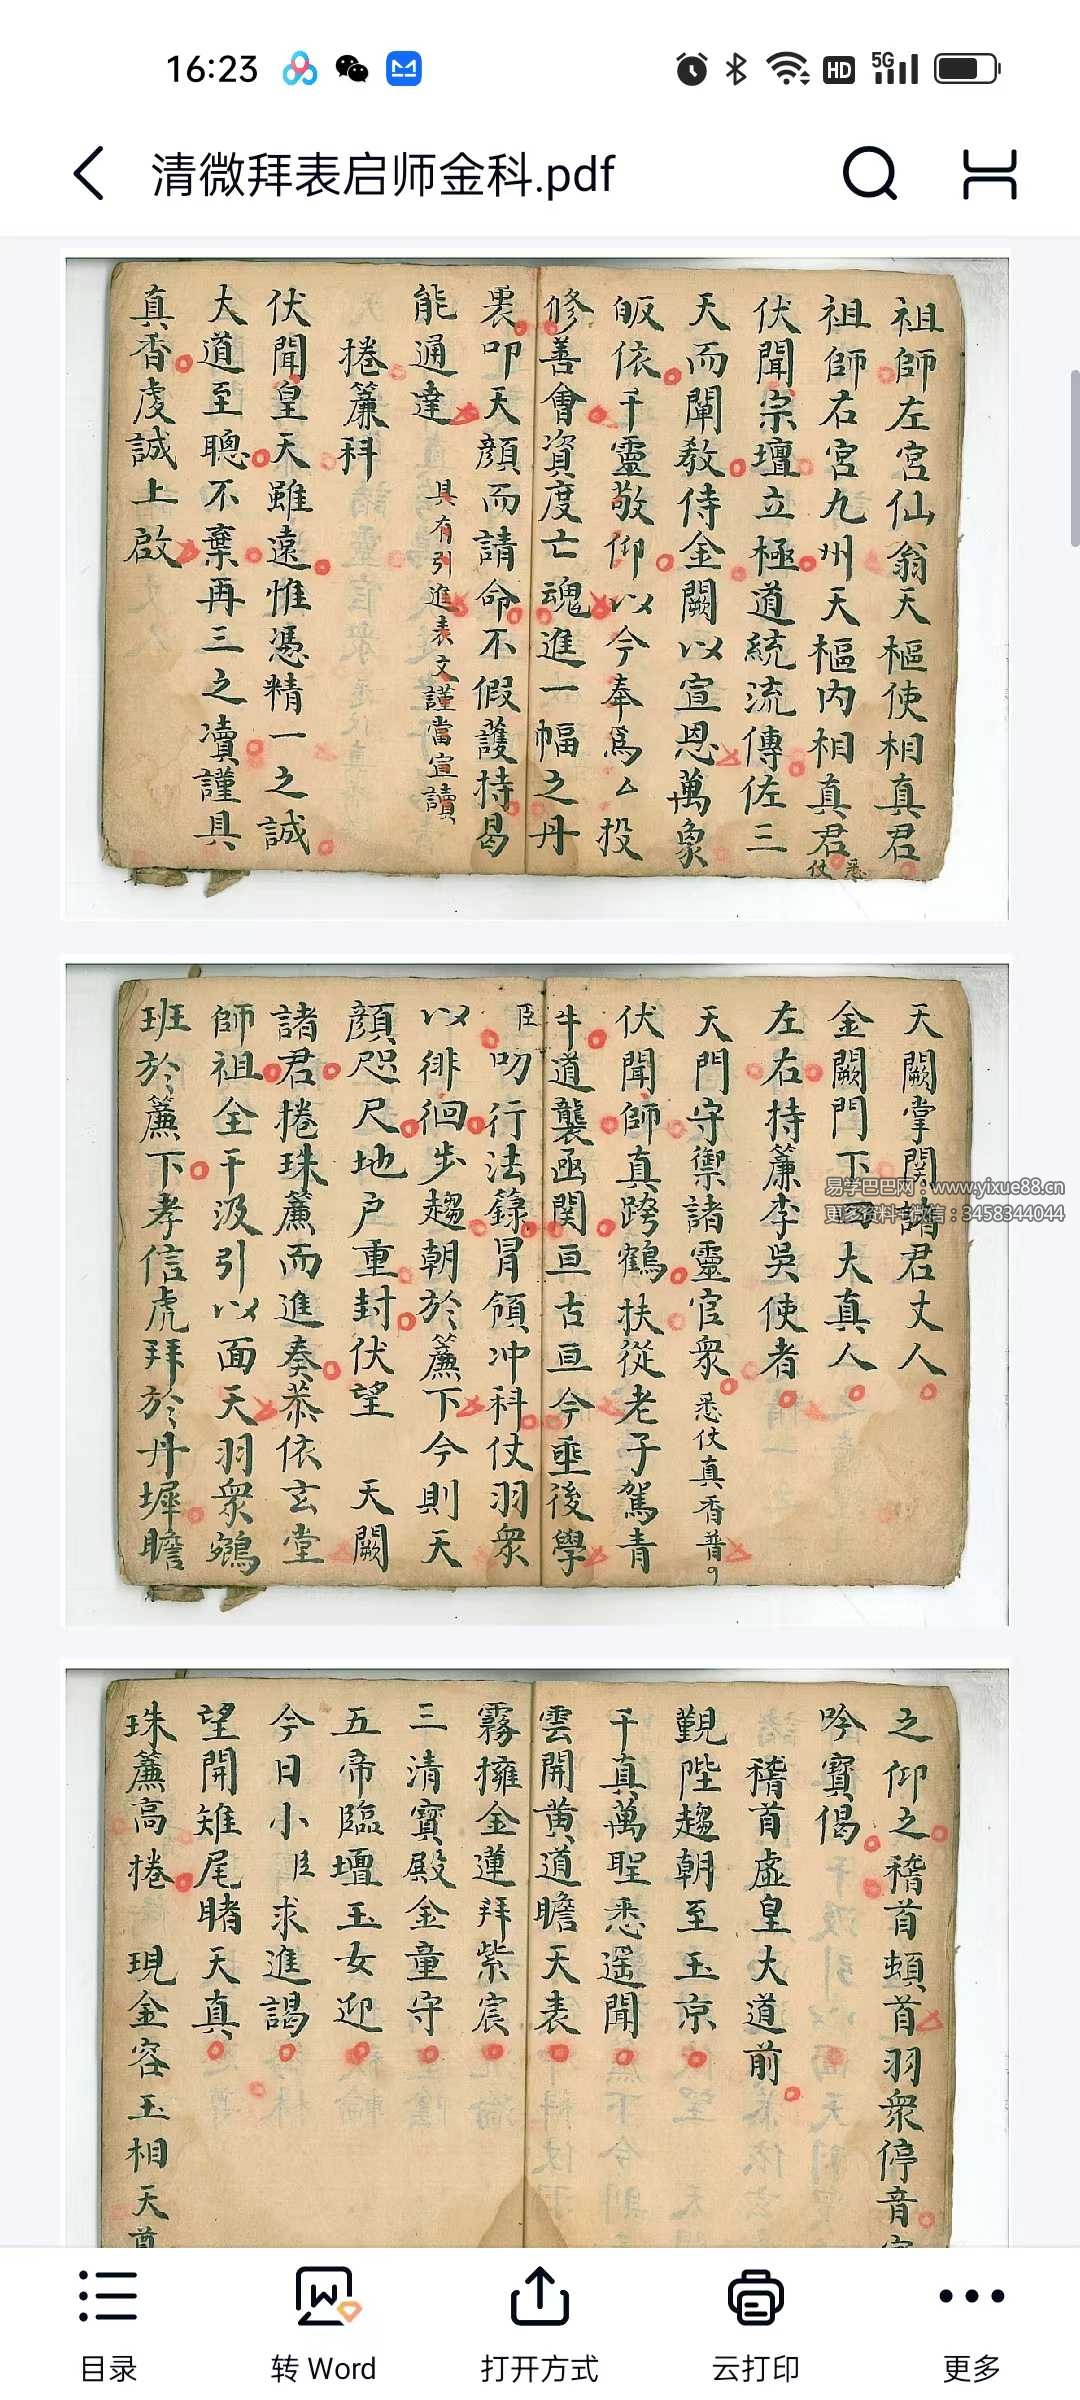 16:23
HD 5G
清微拜表启师金科.pdf
祖師左宮仙翁天樞使相真君
祖師右宮九州天樞內相真君
悉仗
伏聞宗壇立極道統流傳佐三
天而闡教侍金闕以宣恩萬象
皈依千靈敬仰以今奉為厶投
修善會資度亡魂進一幅之丹
裏叩天顏而請命不假護持曷
能通達 具有引進表文謹當宣讀
捲簾科
伏聞皇天雖遠惟憑精一之誠
大道至聰不棄再三之瀆謹具
真香虔誠上啟
天闕掌關諸君丈人
金闕門下四大真人
左右持簾李吳使者
天門守禦諸靈官眾 悉仗真香普
伏聞師真跨鶴扶從老子駕青
牛道襲函關亘古亘今垂後學
臣叨行法籙冐領冲科仗羽衆
以徘徊步趨朝於簾下今則天
顏咫尺地户重封伏望 天闕
諸君捲珠簾而進奏恭依玄堂
師祖全干汲引以面天羽衆鵷
班於簾下孝信虎拜於丹墀瞻
易学巴巴网：www.yixue88.cn
更多资料+微信：3458344044
之仰之稽首頓首羽衆停音
吟寶偈
稽首虛皇大道前
觀陛趨朝至玉京
千真萬聖悉遥聞
雲開黃道瞻天表
霧擁金蓮拜紫宸
三清寶殿金童守
五帝臨壇玉女迎
今日小臣求進謁
望開雉尾睹天真
珠簾高捲 現金容玉相天尊
目录
转 Word
打开方式
云打印
更多